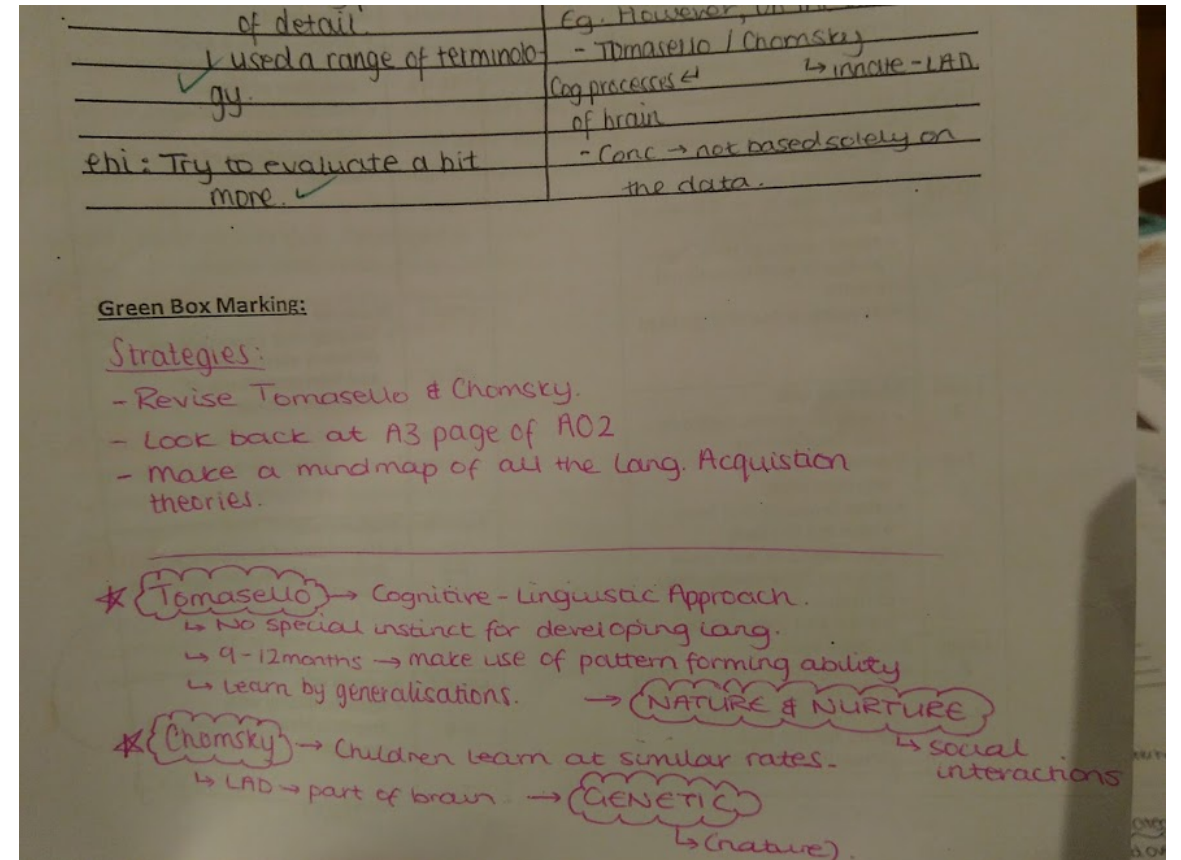 of detail.
↳ used a range of terminolo-
gy.
ebi: Try to evaluate a bit
more.
Eg. However,
- Tomasello / Chomsky
↳ innate - LAD.
Cog processes ↵
of brain
- Conc → not based solely on
the data.
Green Box Marking:
Strategies:
- Revise Tomasello & Chomsky.
- Look back at A3 page of AO2
- Make a mindmap of all the Lang. Acquistion
theories.
Tomasello → Cognitive - Linguistic Approach.
↳ No special instinct for developing lang.
↳ 9-12months → make use of pattern forming ability
↳ Learn by generalisations. → NATURE & NURTURE
↳ social
interactions
Chomsky → Children learn at similar rates.
↳ LAD → part of brain → GENETIC
↳ (nature).